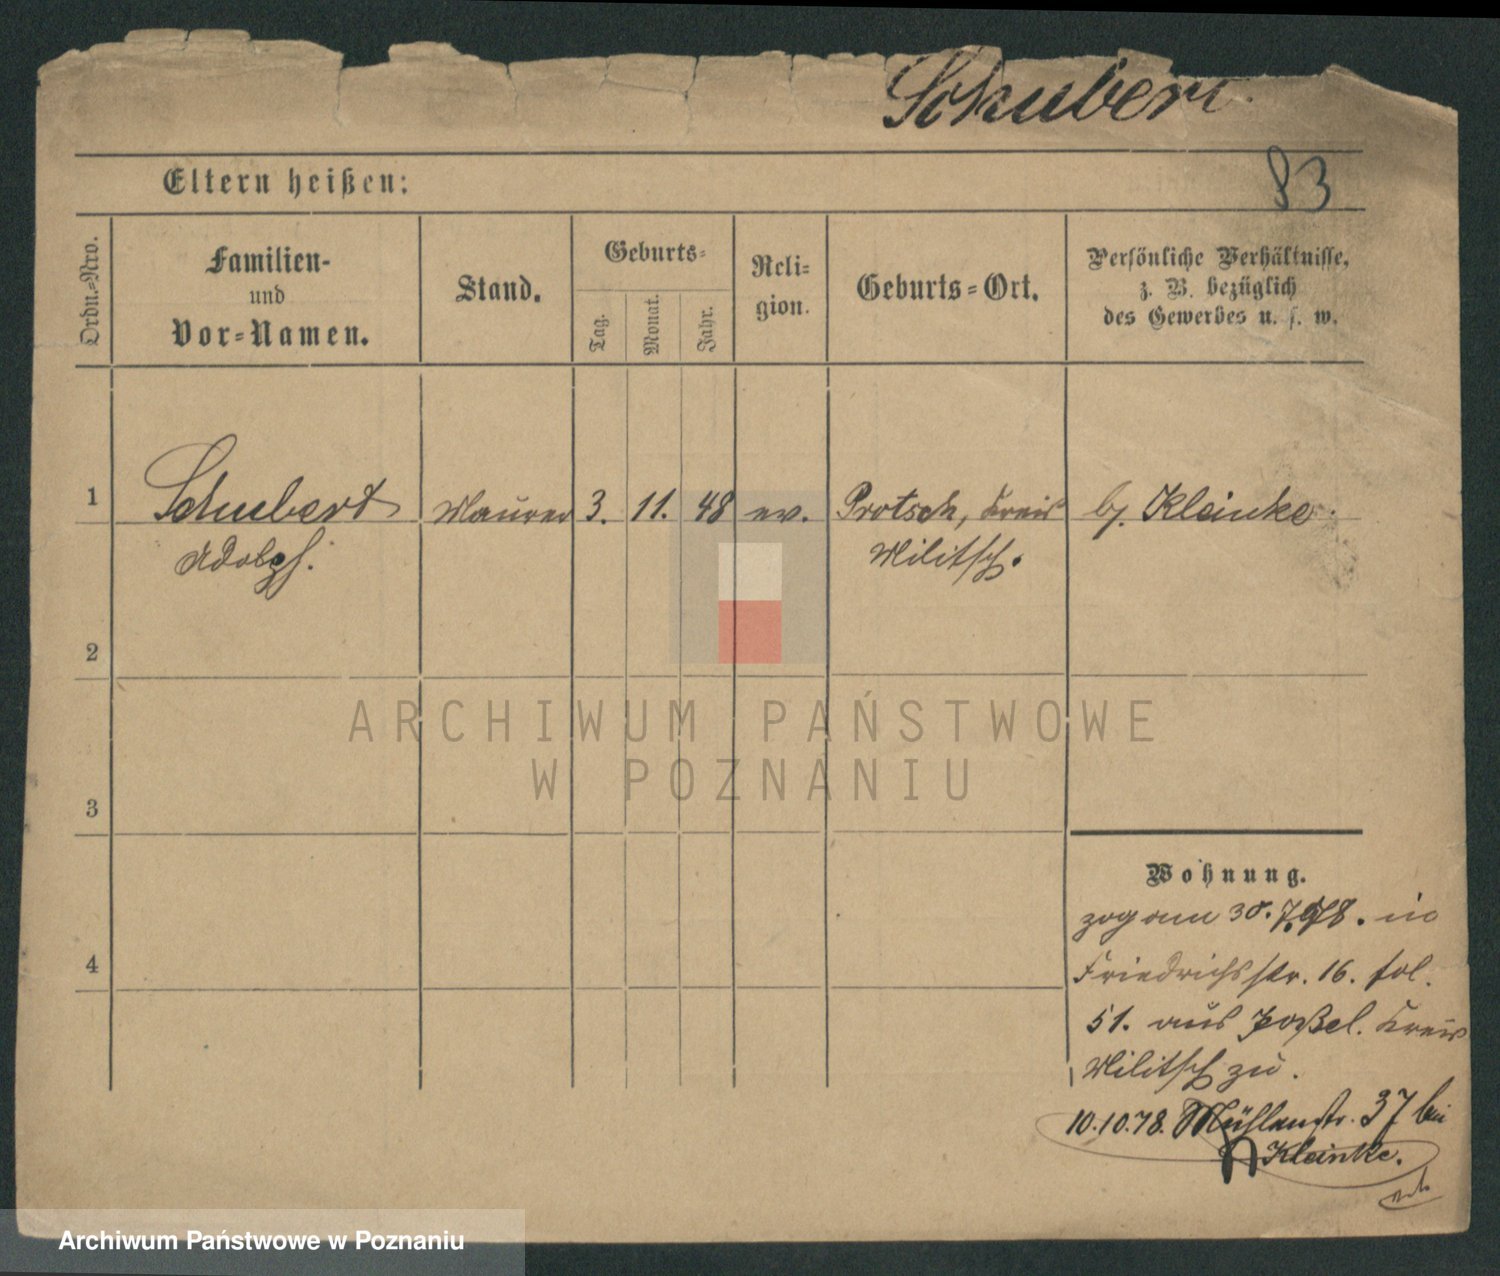 Schubert.
83
Eltern heißen:
Ordn.-Nro.
Familien-
und
Vor-Namen.
Stand.
Geburts-
Tag.
Monat.
Jahr.
Reli-
gion.
Geburts-Ort.
Persönliche Verhältnisse,
z. B. bezüglich
des Gewerbes u. s. w.
1
Schubert
Adolph.
Maurer
3.
11.
48
ev.
Protsch, Kreis
Militsch.
bj. Kleinke.
2
3
4
ARCHIWUM PAŃSTWOWE
W POZNANIU
Wohnung.
zog am 30.7.78. in
Friedrichsstr. 16. fol.
51. aus Kreis
Militsch zu.
10.10.78. Mühlenstr. 37 bei
Kleinke.
Archiwum Państwowe w Poznaniu